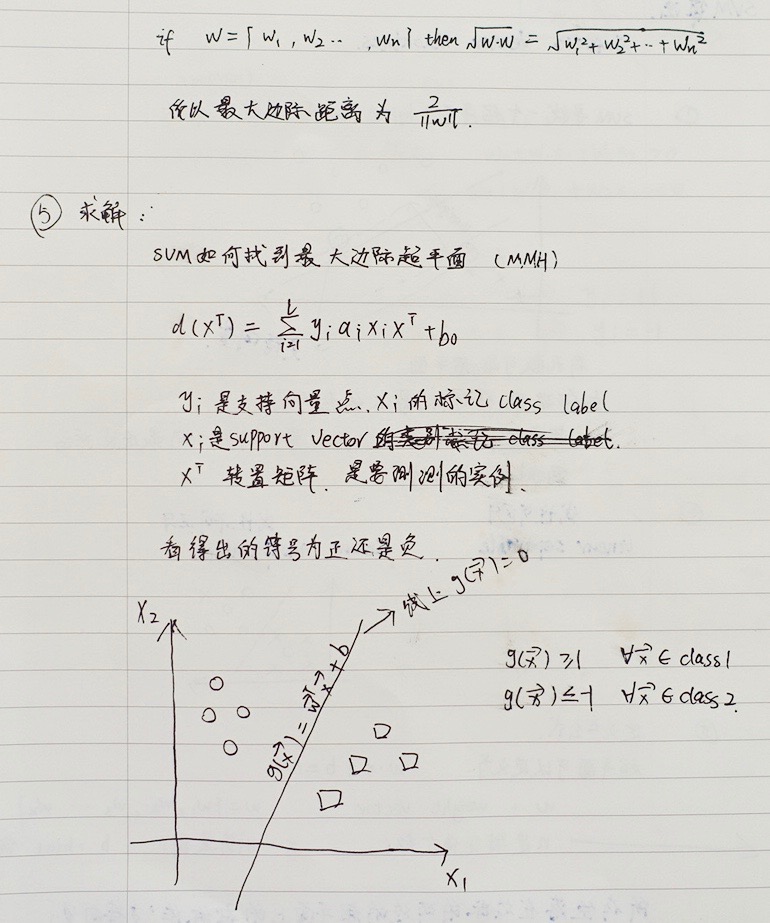 if w = [w₁, w₂ .. , wn] then √w·w = √w₁²+w₂²+··+wn²
所以最大边际距离为 2/||w||.
⑤ 求解:
SVM如何找到最大边际超平面 (MMH)
d(X^T) = Σ_{i=1}^{l} y_i a_i x_i X^T + b₀
y_i 是支持向量点. X_i 的标记 class label
x_i是support vector 的类别标记 class label.
X^T 转置矩阵. 是要测测的实例.
看得出的符号为正还是负.
→ 线上 g(x⃗)=0
X₂
g(x⃗) = w⃗^T x⃗ + b
g(x⃗) ≥1 ∀x⃗ ∈ class1
g(x⃗) ≤ -1 ∀x⃗ ∈ class2.
X₁